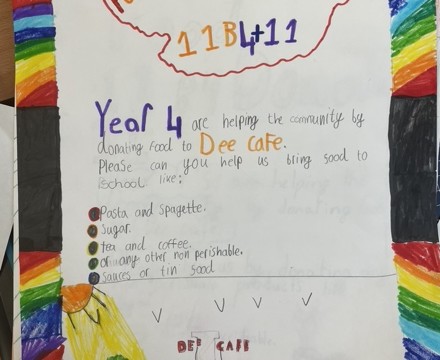 11B4+11
Year 4 are helping the community by
donating food to Dee Cafe.
Please can you help us bring sood to
school like:
Pasta and spagette.
Sugar.
tea and coffee.
or any other non perishable.
sauces or tin sood
DEE CAFE